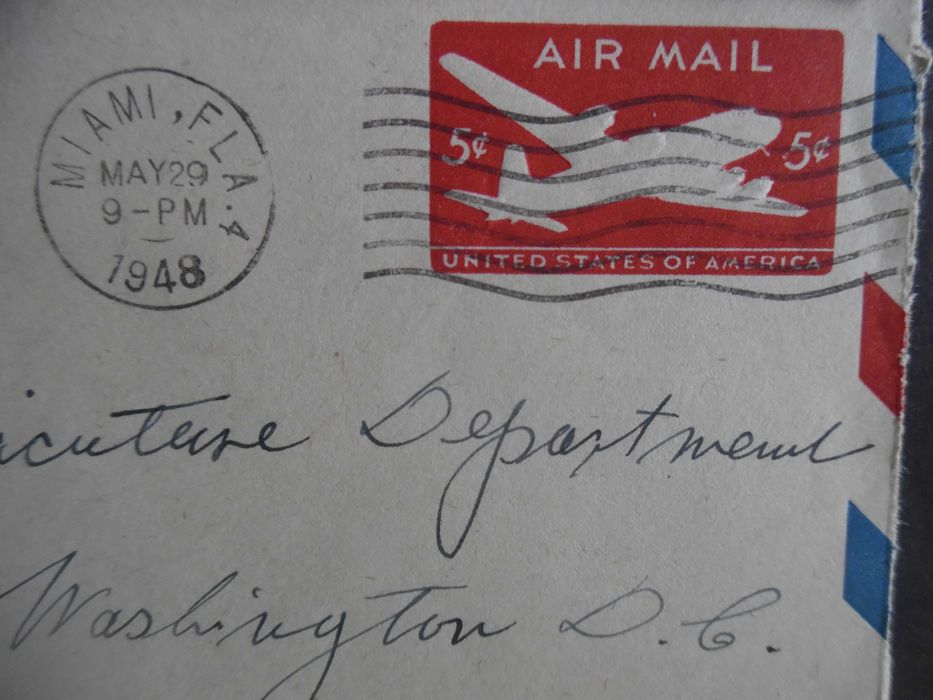 MIAMI, FLA. 4
MAY 29
9-PM
1948
AIR MAIL
5¢ 5¢
UNITED STATES OF AMERICA
icuture Department
Washington D.C.